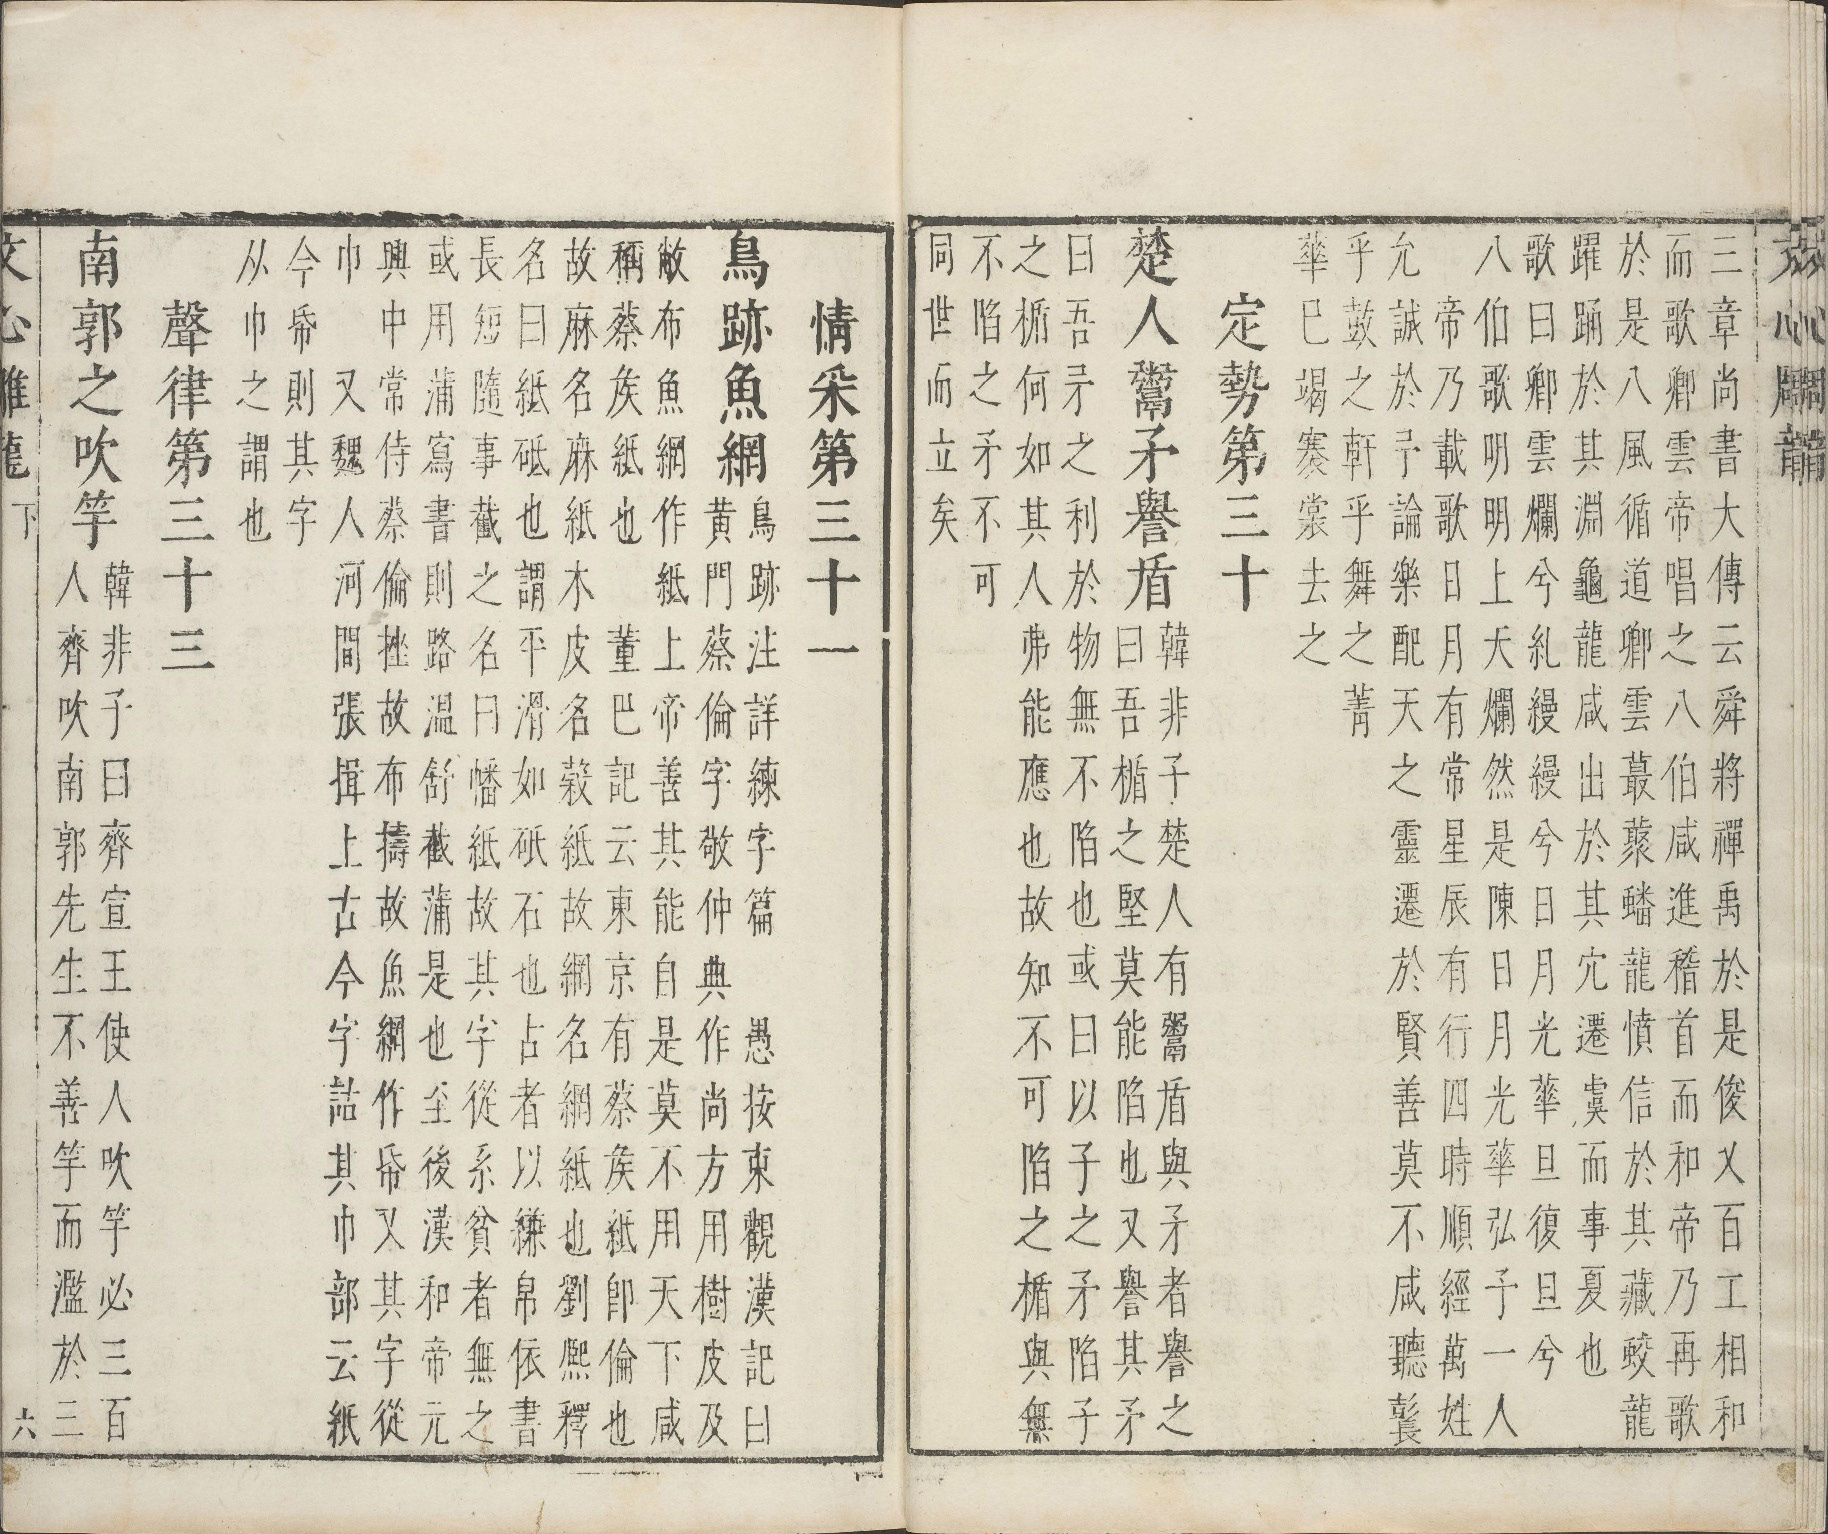 文心雕龍
三章尚書大傳云舜將禪禹於是俊乂百工相和
而歌卿雲帝唱之八伯咸進稽首而和帝乃再歌
於是八風循道卿雲蕞藂蟠龍憤信於其藏蛟龍
躍踊於其淵龜龍咸出於其穴遷虞而事夏也
歌曰卿雲爛兮糺縵縵兮日月光華旦復旦兮
八伯歌明明上天爛然是陳日月光華弘予一人
帝乃載歌日月有常星辰有行四時順經萬姓
允誠於予論樂配天之靈遷於賢善莫不咸聽鼚
乎鼓之軒乎舞之菁
華巳竭褰裳去之
定勢第三十
楚人鬻矛譽盾
韓非子楚人有鬻盾與矛者譽之
曰吾楯之堅莫能陷也又譽其矛
曰吾矛之利於物無不陷也或曰以子之矛陷子
之楯何如其人弗能應也故知不可陷之楯與無
不陷之矛不可
同世而立矣
情采第三十一
鳥跡魚網
鳥跡注詳練字篇 愚按東觀漢記曰
黄門蔡倫字敬仲典作尚方用樹皮及
敝布魚網作紙上帝善其能自是莫不用天下咸
稱蔡矦紙也 董巴記云東京有蔡矦紙卽倫也
故麻名麻紙木皮名榖紙故網名網紙也劉熈釋
名曰紙砥也謂平滑如砥石也古者以縑帛依書
長短隨事截之名曰幡紙故其字從糸貧者無之
或用蒲寫書則路温舒截蒲是也至後漢和帝元
興中常侍蔡倫挫故布擣故魚網作帋又其字從
巾 又魏人河間張揖上古今字詁其巾部云紙
今帋則其字
从巾之謂也
聲律第三十三
南郭之吹竽
韓非子曰齊宣王使人吹竽必三百
人齊吹南郭先生不善竽而濫於三
文心雕龍 下
六